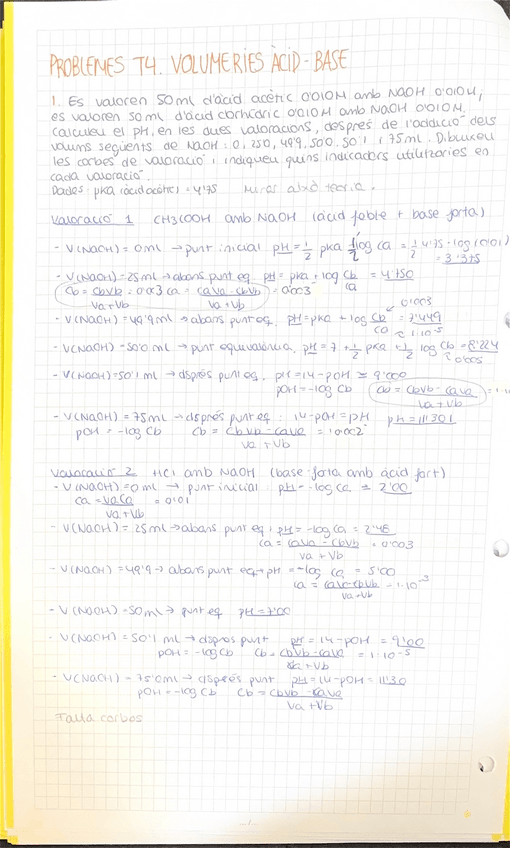 PROBLEMES T4. VOLUMERIES ÀCID-BASE
1. Es valoren 50ml d'àcid acètic 0'010M amb NaOH 0'010M,
es valoren 50ml d'àcid clorhídric 0'010M amb NaOH 0'010M.
Calculeu el pH, en les dues valoracions, després de l'addició dels
volums següents de NaOH: 0, 25'0, 49'9, 50'0, 50'1 i 75ml. Dibuixeu
les corbes de valoració i indiqueu quins indicadors utilitzaries en
cada valoració.
Dades: pKa (àcid acètic) = 4'75 Mirar això teoria.
Valoració 1 CH3COOH amb NaOH (àcid feble + base forta)
- V(NaOH) = 0ml → punt inicial pH = 1/2 pKa - 1/2 log Ca = 1/2 4'75 - log (0'01)
= 3'375
- V(NaOH) = 25ml → abans punt eq. pH = pKa + log Cb/Ca = 4'750
Cb = CbVb/Va+Vb = 0'003 Ca = CaVa-CbVb/Va+Vb = 0'003
0'003
- V(NaOH) = 49'9ml → abans punt eq. pH = pKa + log Cb/Ca = 7'449
1·10-5
- V(NaOH) = 50'0ml → punt equivalència. pH = 7 + 1/2 pKa + 1/2 log Cb = 8'224
0'005
- V(NaOH) = 50'1ml → dsprés punt eq. pH = 14 - pOH = 9'000
pOH = -log Cb Cb = CbVb - CaVa/Va+Vb
- V(NaOH) = 75ml → dsprés punt eq: 14 - pOH = pH pH = 11'301
pOH = -log Cb Cb = CbVb - CaVa/Va+Vb = 0'002
Valoració 2 HCl amb NaOH (base forta amb àcid fort)
- V(NaOH) = 0ml → punt inicial: pH = -log Ca = 2'00
Ca = VaCa/Va+Vb = 0'01
- V(NaOH) = 25ml → abans punt eq: pH = -log Ca = 2'48
Ca = CaVa - CbVb/Va+Vb = 0'003
- V(NaOH) = 49'9 → abans punt eq → pH = -log Ca = 5'00
Ca = CaVa-CbVb/Va+Vb = 1·10-5
- V(NaOH) = 50ml → punt eq pH = 7'00
- V(NaOH) = 50'1ml → dsprés punt pH = 14 - pOH = 9'00
pOH = -log Cb Cb = CbVb - CaVa/Va+Vb = 1·10-5
- V(NaOH) = 75'0ml → dsprés punt pH = 14 - pOH = 11'30
pOH = -log Cb Cb = CbVb - CaVa/Va+Vb
Falta corbes